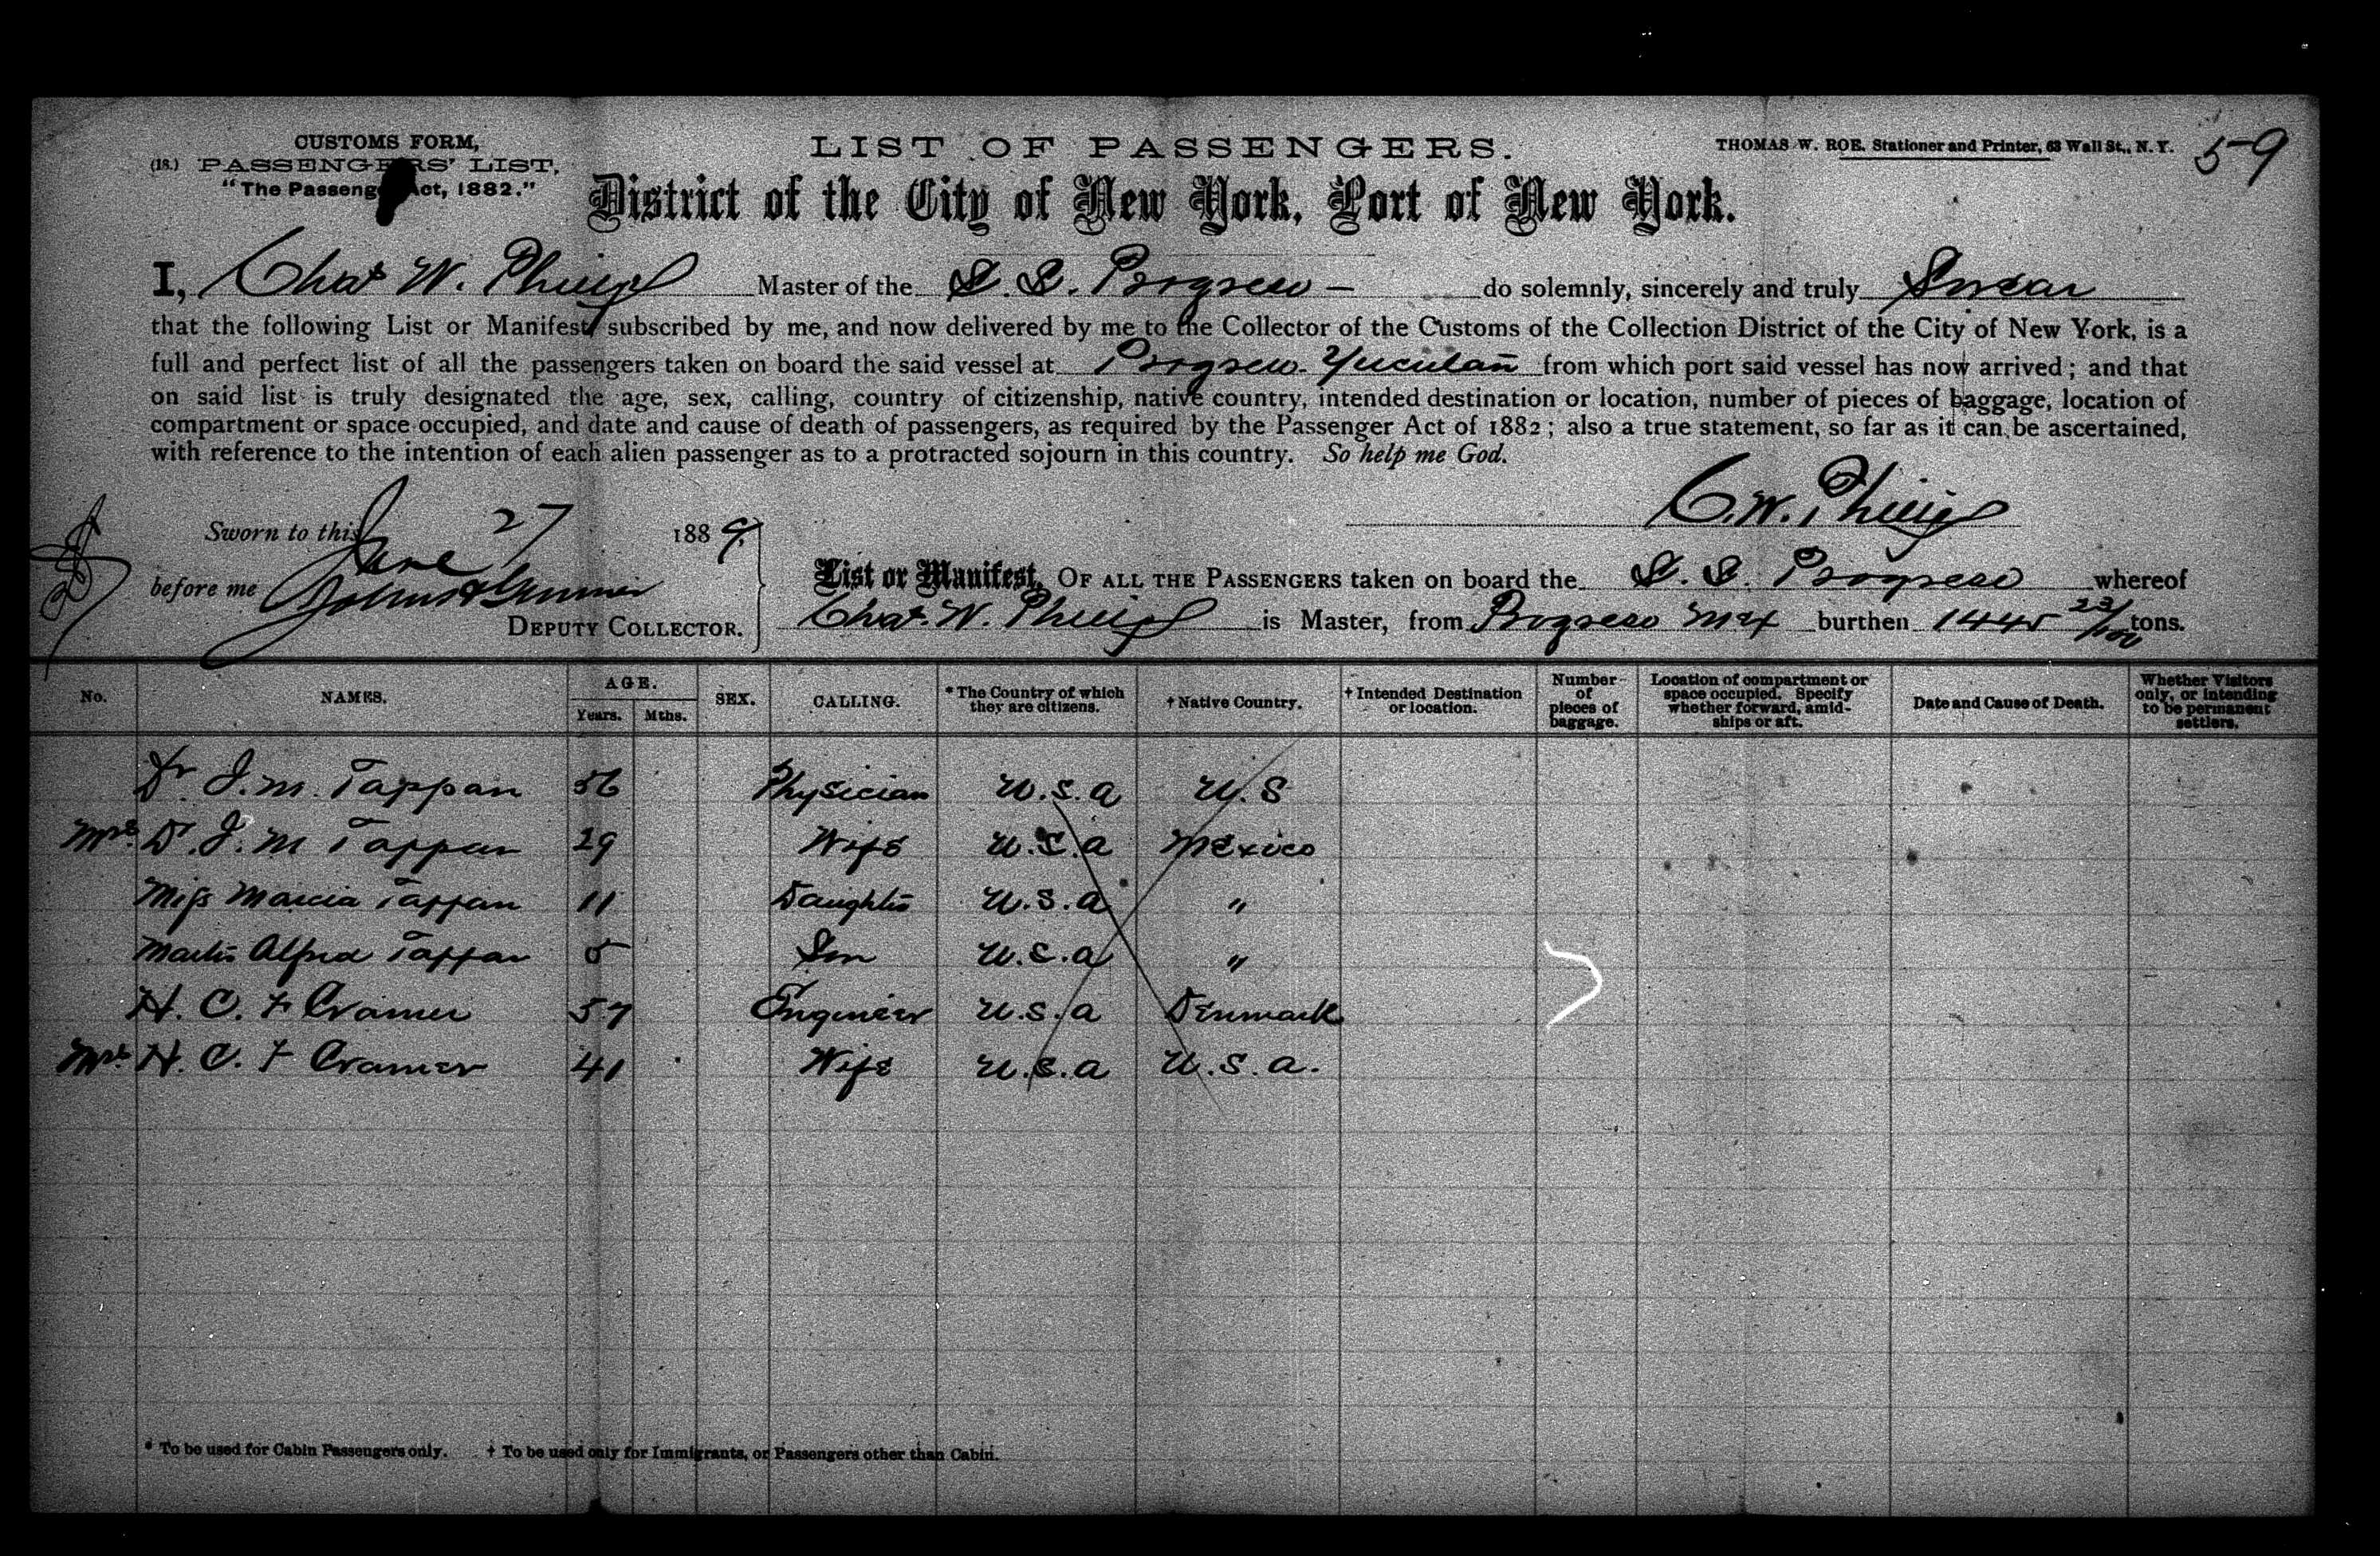 CUSTOMS FORM,
(18.) PASSENGERS' LIST,
"The Passenger Act, 1882."
LIST OF PASSENGERS.
THOMAS W. ROE. Stationer and Printer, 63 Wall St., N. Y.
59
District of the City of New York, Port of New York.
I, Chas W. Phillips Master of the S. S. Progreso — do solemnly, sincerely and truly Swear
that the following List or Manifest, subscribed by me, and now delivered by me to the Collector of the Customs of the Collection District of the City of New York, is a
full and perfect list of all the passengers taken on board the said vessel at Progreso Yucutan from which port said vessel has now arrived; and that
on said list is truly designated the age, sex, calling, country of citizenship, native country, intended destination or location, number of pieces of baggage, location of
compartment or space occupied, and date and cause of death of passengers, as required by the Passenger Act of 1882; also a true statement, so far as it can be ascertained,
with reference to the intention of each alien passenger as to a protracted sojourn in this country. So help me God.
C. W. Phillips
Sworn to this June 27 1889
before me
DEPUTY COLLECTOR.
List or Manifest, OF ALL THE PASSENGERS taken on board the S. S. Progreso whereof
Chas. W. Phillips is Master, from Progreso Mex burthen 1445 23/100 tons.
No. NAMES. AGE. Years. Mths. SEX. CALLING. * The Country of which they are citizens. † Native Country. † Intended Destination or location. Number of pieces of baggage. Location of compartment or space occupied. Specify whether forward, amidships or aft. Date and Cause of Death. Whether Visitors only, or intending to be permanent settlers.
Dr J. M. Tappan 56 Physician U.S.A U.S
Mrs. D. J. M Tappan 29 Wife U.S.A Mexico
Miss Marcia Tappan 11 Daughter U.S.A "
Master Alfred Tappan 5 Son U.S.A "
H. C. F Cramer 57 Engineer U.S.A Denmark
Mrs. H. C. F Cramer 41 Wife U.S.A U.S.A.
* To be used for Cabin Passengers only. † To be used only for Immigrants, or Passengers other than Cabin.